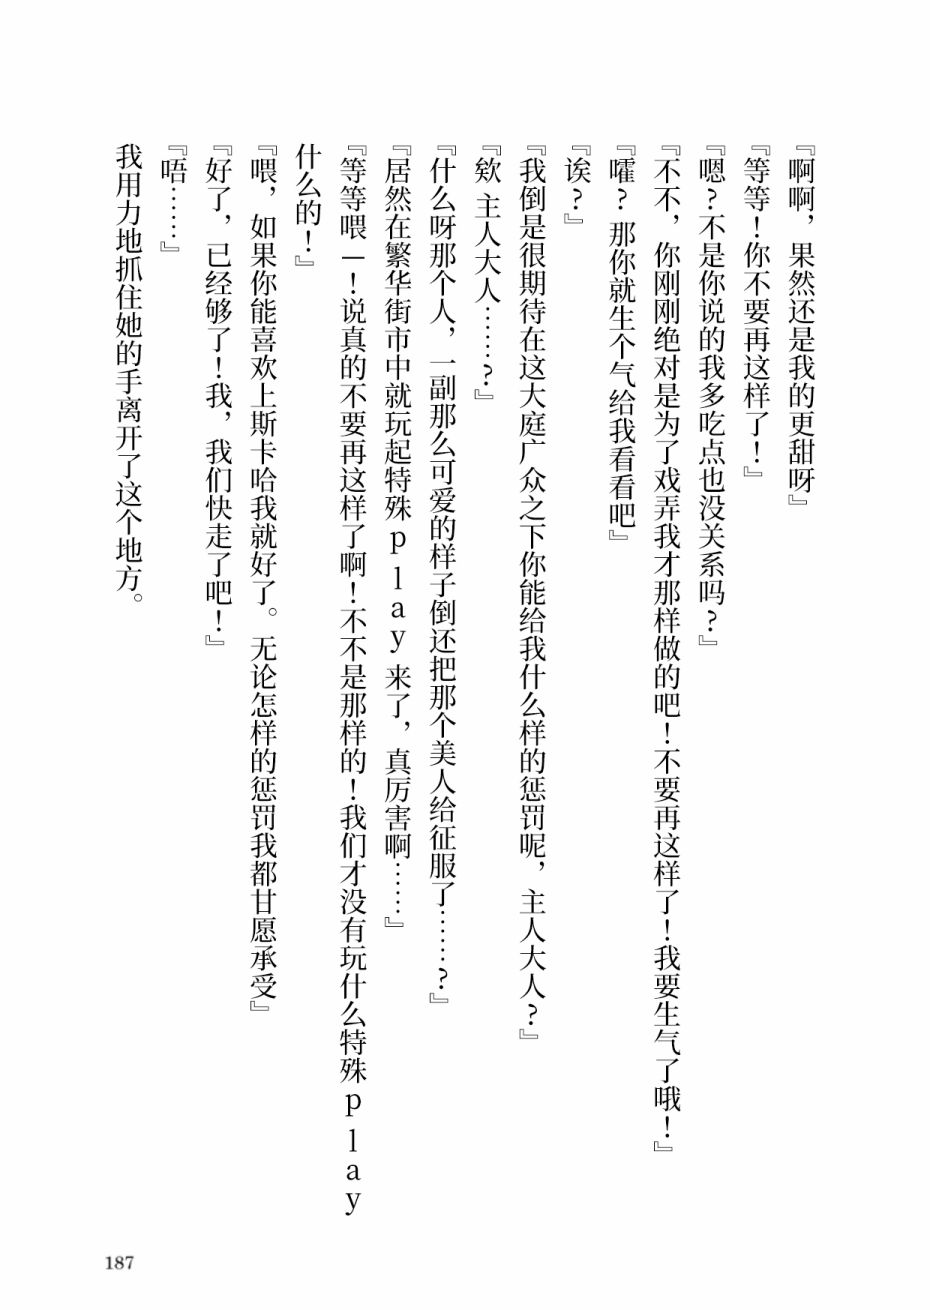 『啊啊，果然还是我的更甜呀』
『等等！你不要再这样了！』
『嗯？不是你说的我多吃点也没关系吗？』
『不不，你刚刚绝对是为了戏弄我才那样做的吧！不要再这样了！我要生气了哦！』
『嚯？那你就生个气给我看看吧』
『诶？』
『我倒是很期待在这大庭广众之下你能给我什么样的惩罚呢，主人大人？』
『欸 主人大人……？』
『什么呀那个人，一副那么可爱的样子倒还把那个美人给征服了……？』
『居然在繁华街市中就玩起特殊play来了，真厉害啊……』
『等等喂—！说真的不要再这样了啊！不不是那样的！我们才没有玩什么特殊play
什么的！』
『喂，如果你能喜欢上斯卡哈我就好了。无论怎样的惩罚我都甘愿承受』
『好了，已经够了！我，我们快走了吧！』
『唔……』
我用力地抓住她的手离开了这个地方。
187